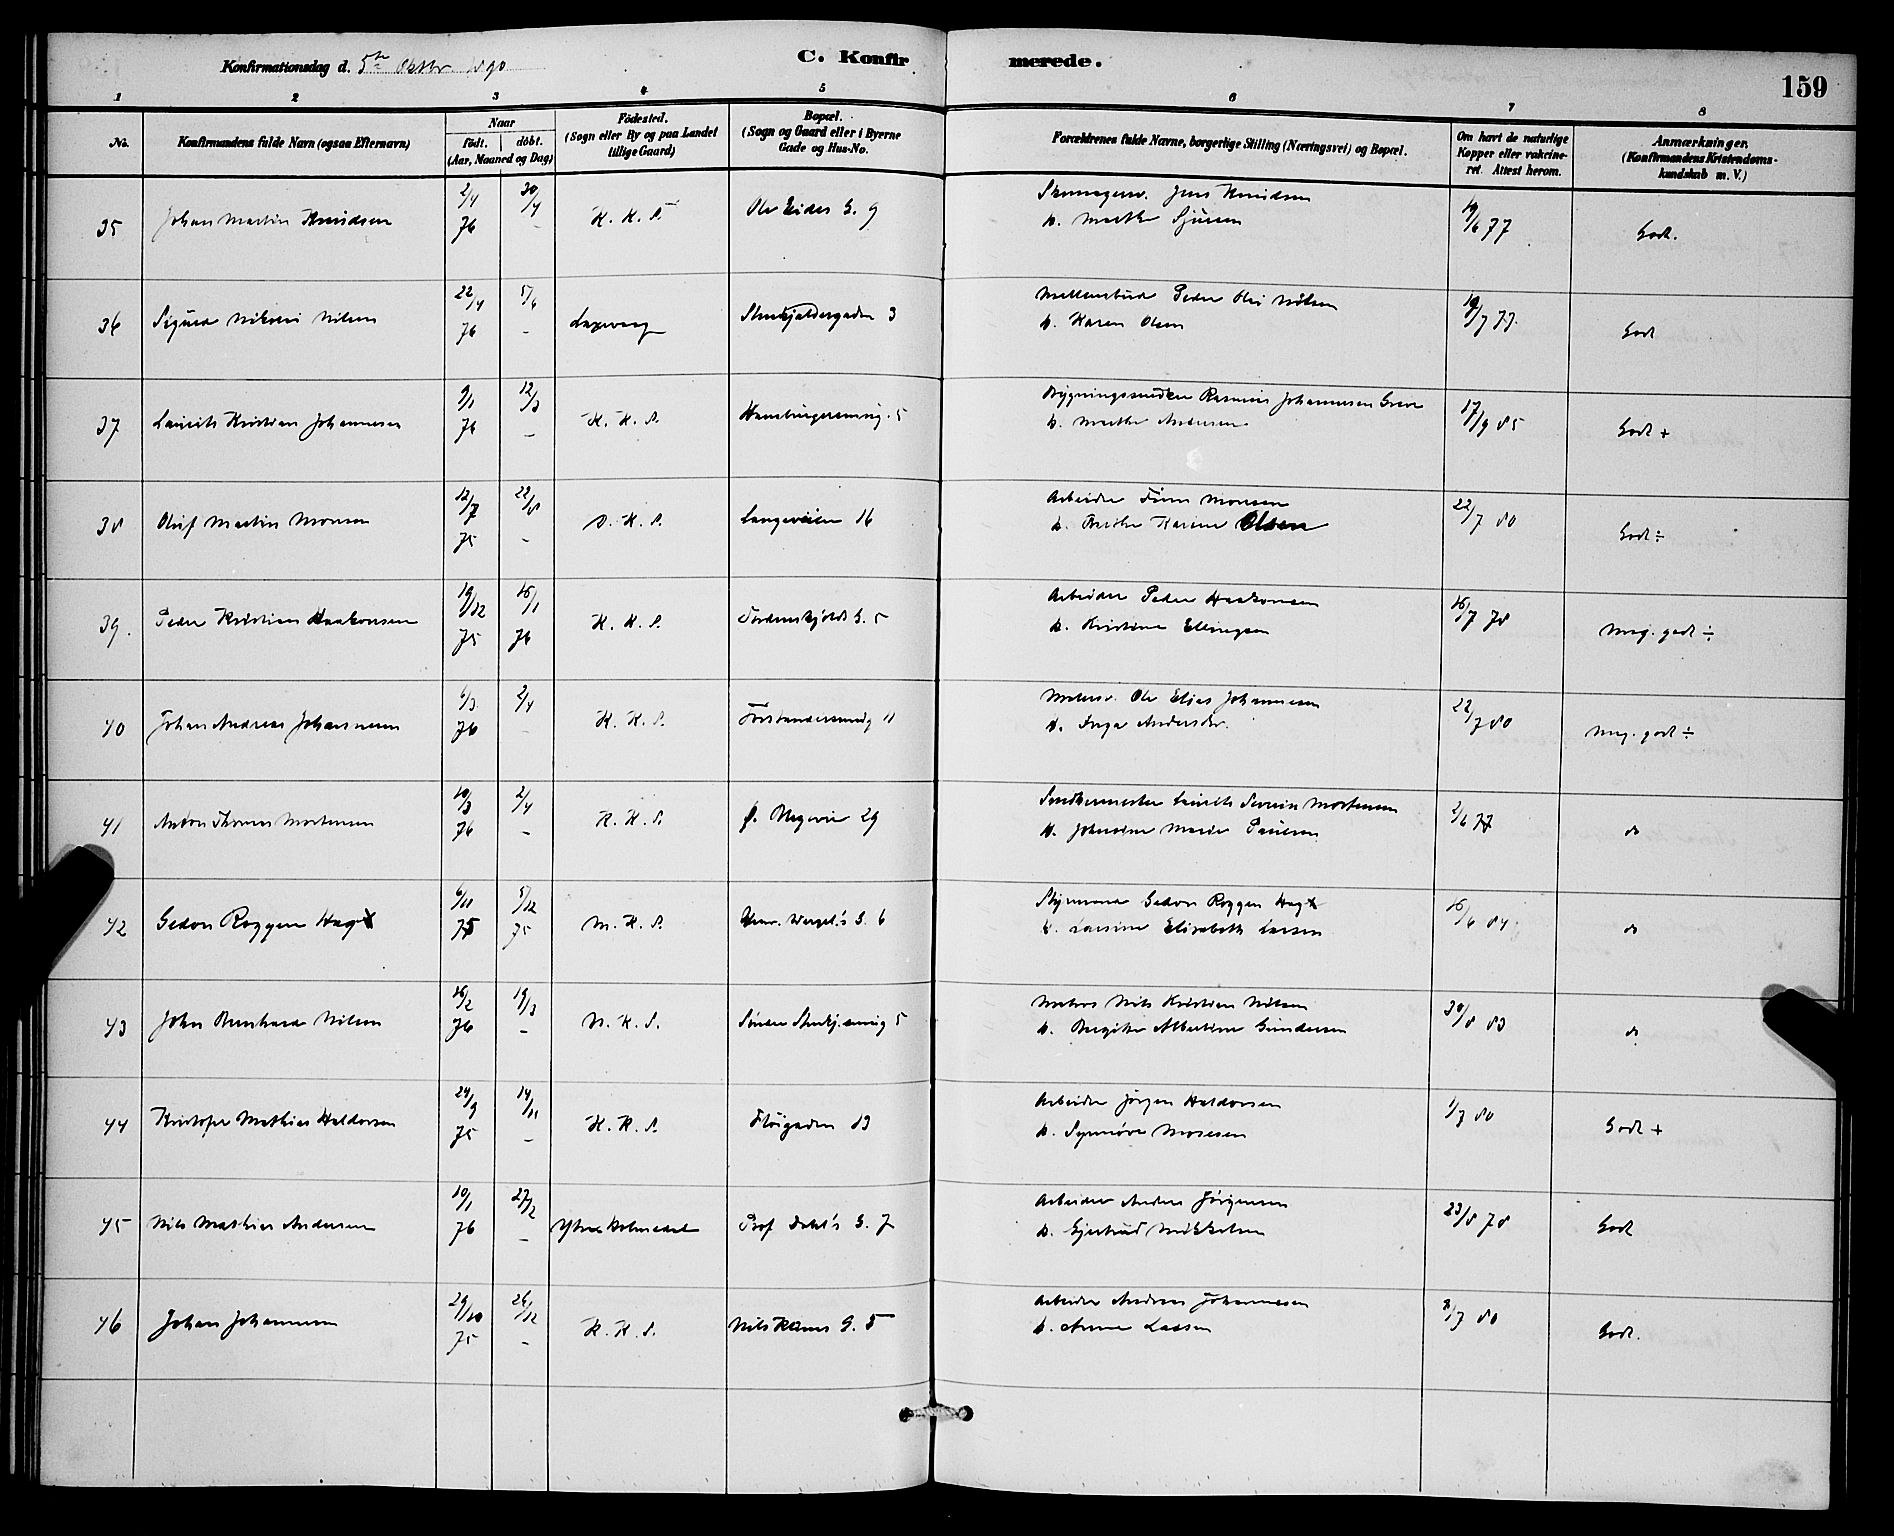 Konfirmationsdag d. 5te Oktbr 1890
C. Konfirmerede.
159
1 2 3 4 5 6 7 8
No. Konfirmandens fulde Navn (ogsaa Efternavn) Naar födt. döbt. (Aar, Maaned og Dag) Födested. (Sogn eller By og paa Landet tillige Gaard) Bopæl. (Sogn og Gaard eller i Byerne Gade og Hus-No. Forældrenes fulde Navne, borgerlige Stilling (Næringsvei) og Bopæl. Om havt de naturlige Kopper eller vakcineret. Attest herom. Anmærkninger. (Konfirmandens Kristendomskundskab m. V.)
35 Johan Martin Knudsen 2/4 76 30/4 - K. K. S. Ole Eides G. 9 Jens Knudsen 19/6 77 Godt.
h. Marthe Sjursen
36 Sigurd Nikolai Nilsen 22/4 76 5/6 - Laxevaag 3 Peder Olai Nilsen 19/7 77 Godt
h. Karen Olsen
37 Laurits Kristian Johannesen 9/1 76 12/3 - K. K. S. 5 Bygningssnedker Rasmus Johannesen Greve 17/9 85 Godt +
h. Marthe Andersen
38 Oluf Martin Monsen 12/7 75 22/8 - D. K. S. Langeveien 16 Arbeider Finn Monsen 22/7 80 Godt ÷
h. Karine Olsen
39. Peder Kristian Haakonsen 19/12 75 16/1 76 K. K. S. Tordenskjolds G. 5 Arbeider Peder Haakonsen 16/7 78 Meg. godt ÷
h. Kristine Ellingsen
40 Johan Andreas Johannesen 6/3 76 2/4 - K. K. S. Forstandersmug 11 Ole Elias Johannesen 22/7 80 Meg. godt ÷
h. Inga Andersdr.
41 Anton Thomas Mortensen 10/3 76 2/4 - K. K. S. Ø. 29 Laurits Severin Mortensen 2/6 77 do
h. Johanne Marie Paulsen
42 Gedon Roggen Hagt 6/11 75 5/12 75 N. K. S. Henr. Wergel.'s G. 6 Styrmand Gedon Roggen Hagt 16/6 84 do
h. Larsine Elisabeth Larsen
43 John Bernhard Nilsen 16/2 76 19/3 - N. K. S. 5 Matros Nils Kristian Nilsen 30/8 83 do
h. Birgitte Albertine Gundersen
44 Kristofer Mathias Haldorsen 24/9 75 14/11 - K. K. S. Fløigaden 13 Arbeider Jørgen Haldorsen 1/7 80 Godt +
h. Synnøve Mosesen
45 Nils Mathias Andersen 10/1 76 27/2 - Ytre Holmedal Prof Dahl's G. 7 Arbeider Anders Jørgensen 23/8 78 Godt
h. Gjertrud Mikkelsen
46 Johan Johannesen 29/10 75 26/12 - K. K. S. Nils G. 5 Arbeider Andreas Johannesen 8/7 80 Godt.
h. Anne Lassen